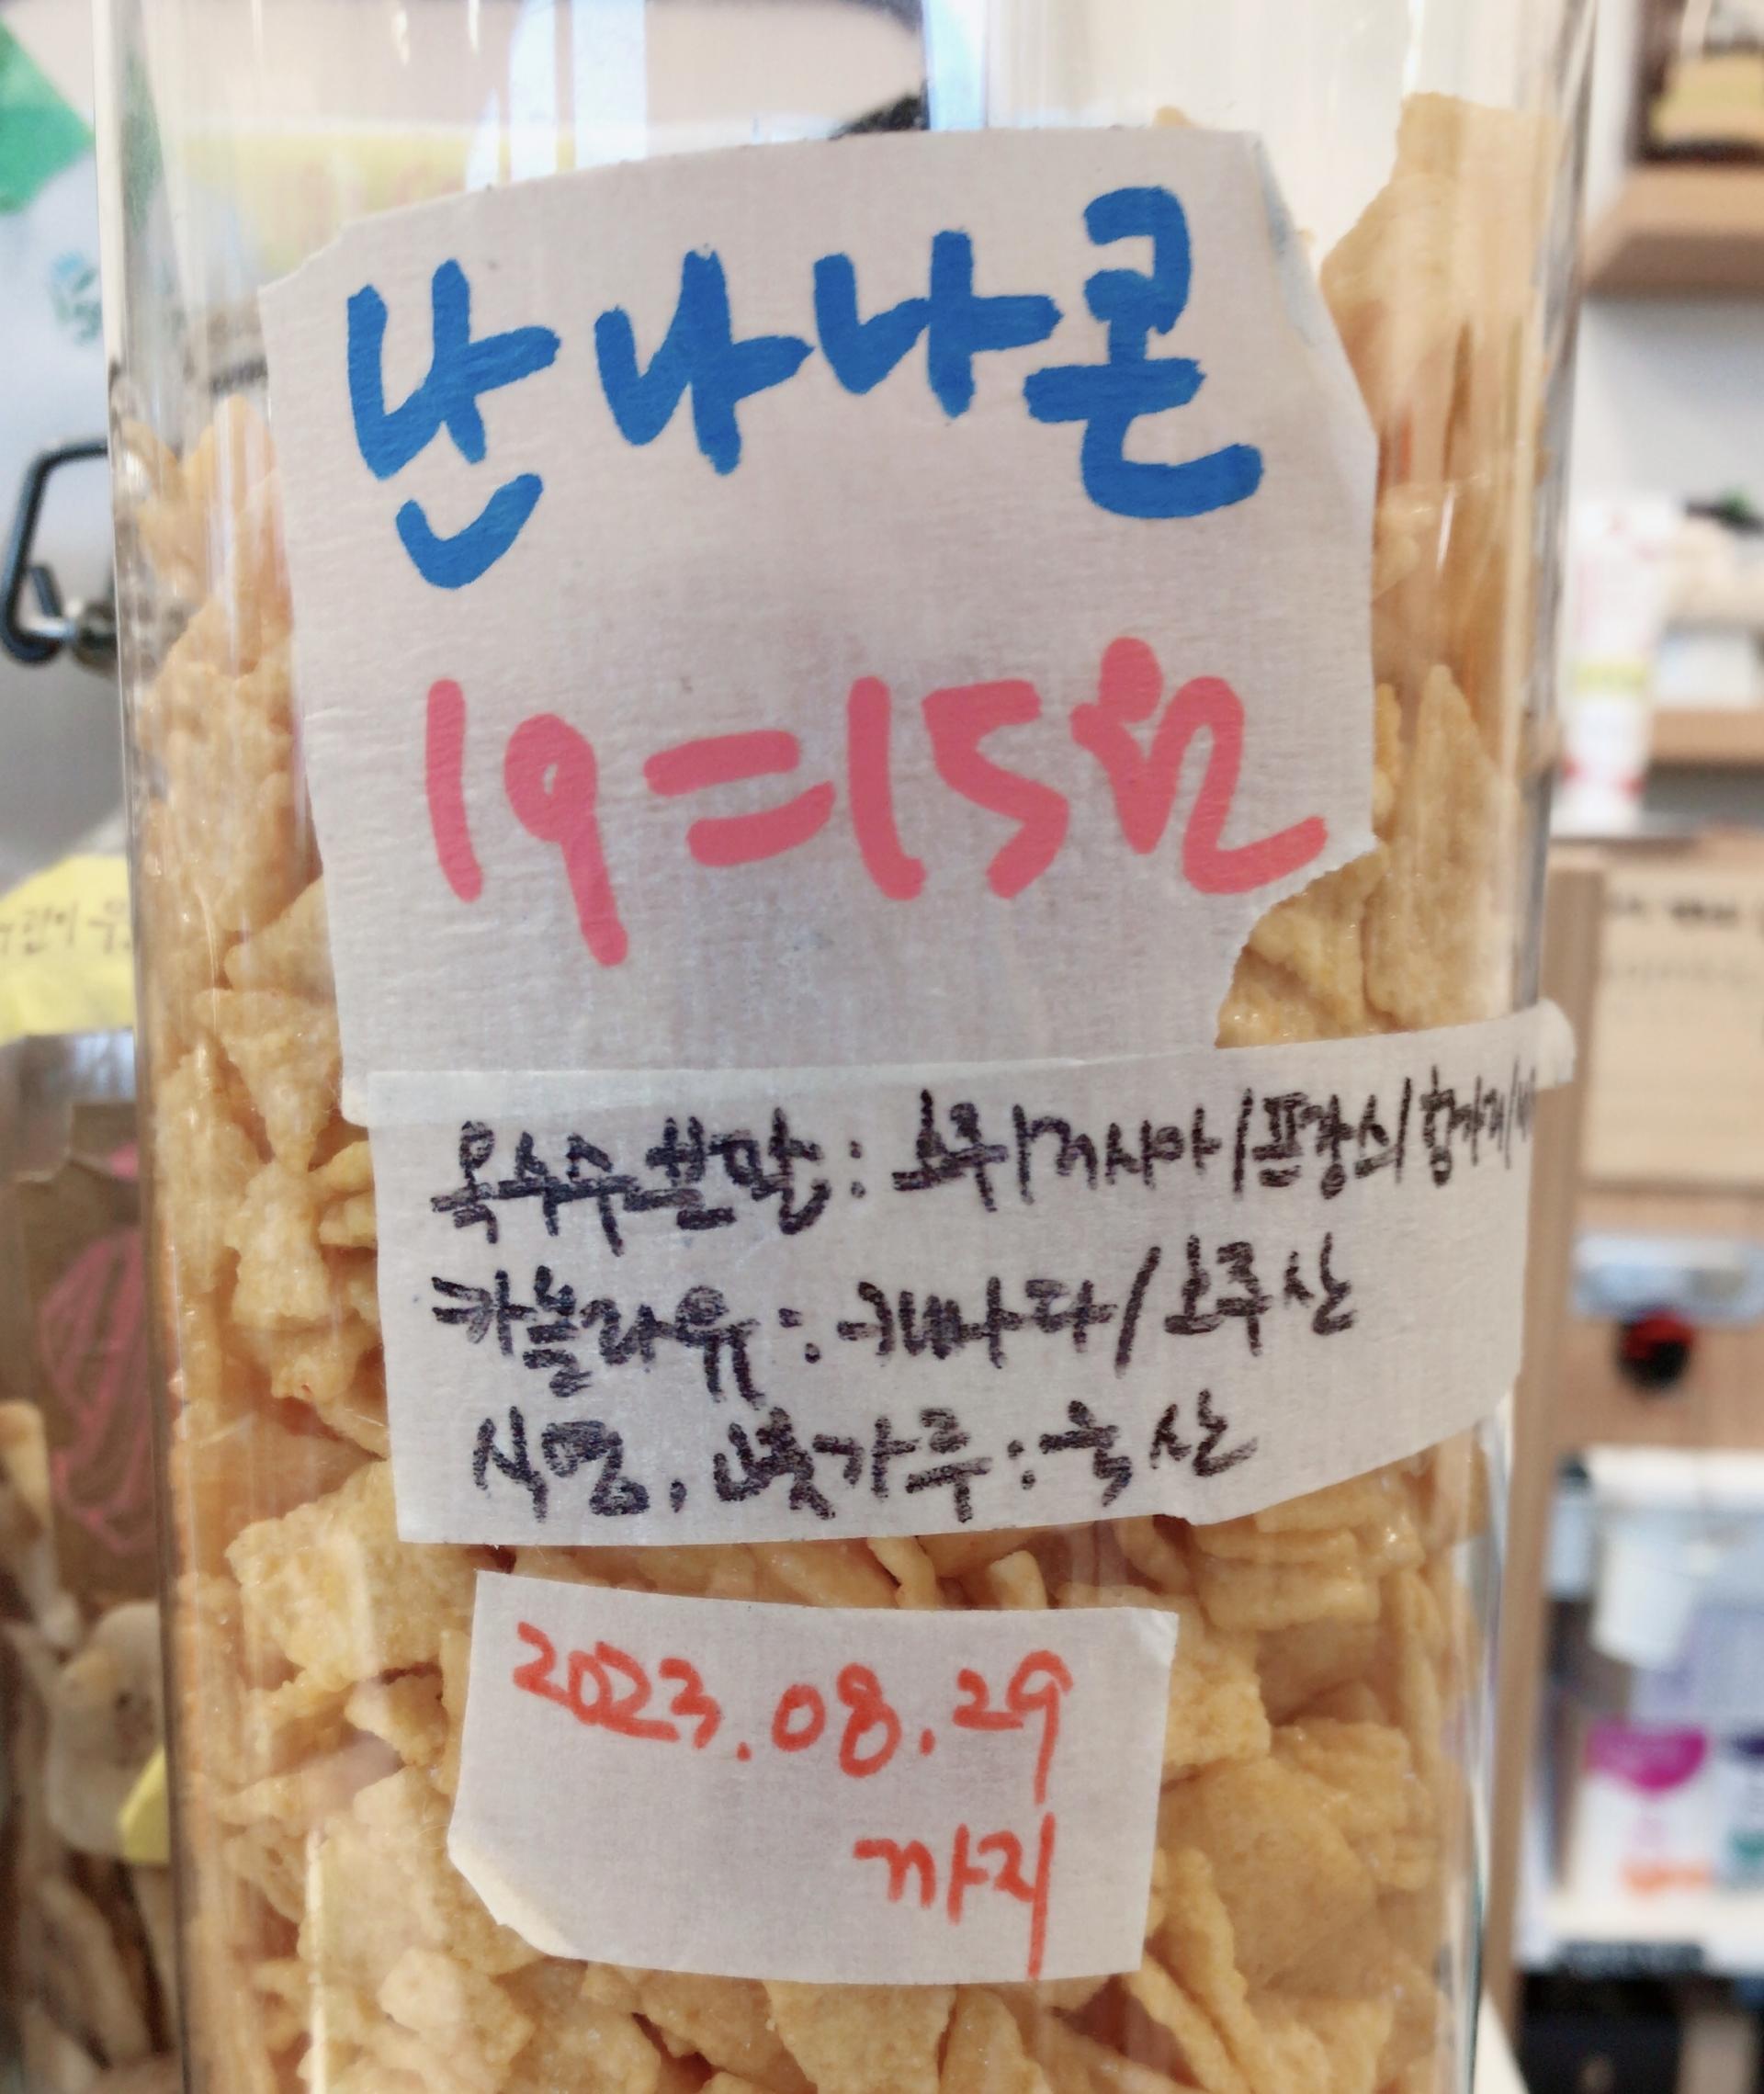 난 나나콘
1g=15원
옥수수분말: 호주/러시아/프랑스/헝가리/
카놀라유: 캐나다/호주산
설탕, 쌀가루: 국산
2023.08.29
까지
어린이